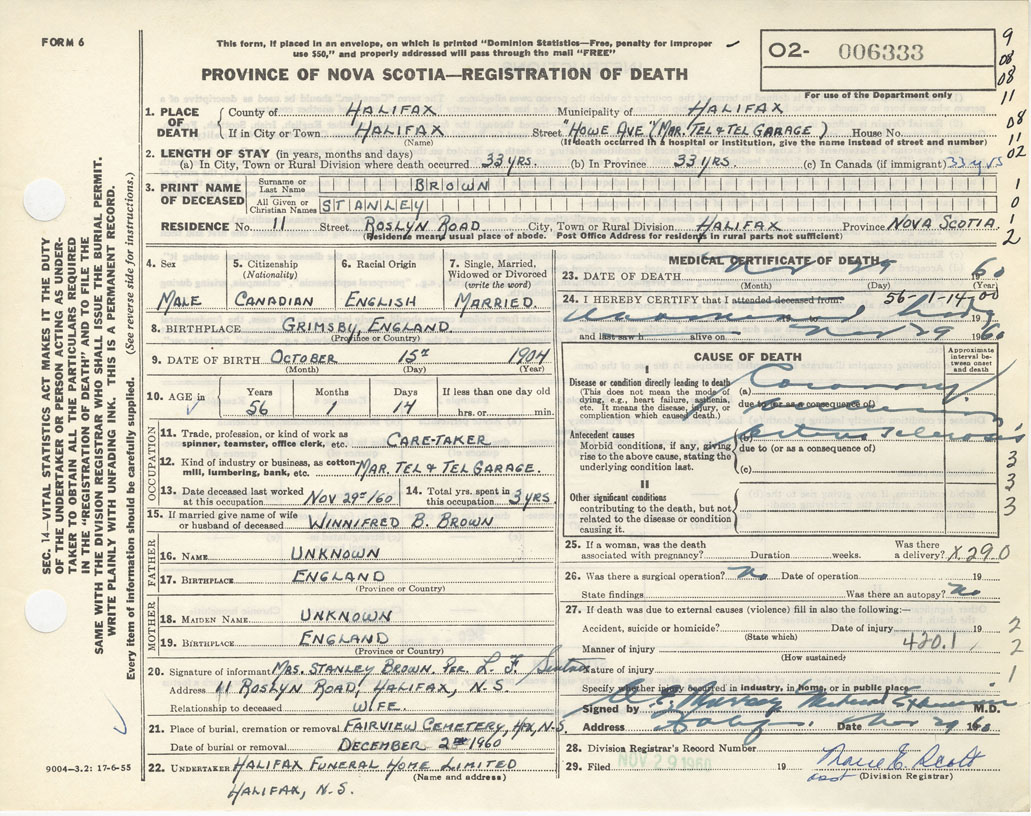 FORM 6
This form, if placed in an envelope, on which is printed "Dominion Statistics—Free, penalty for improper
use $50," and properly addressed will pass through the mail "FREE"
PROVINCE OF NOVA SCOTIA—REGISTRATION OF DEATH
O2- 006333
For use of the Department only
9
08
08
11
08
11
02
1
0
1
2
1. PLACE OF DEATH
County of HALIFAX Municipality of HALIFAX
If in City or Town HALIFAX Street "HOWE AVE" (MAR. TEL & TEL GARAGE) House No.
(Name) (If death occurred in a hospital or institution, give the name instead of street and number)
2. LENGTH OF STAY (in years, months and days)
(a) In City, Town or Rural Division where death occurred 33 YRS. (b) In Province 33 YRS. (c) In Canada (if immigrant) 33 yrs
3. PRINT NAME OF DECEASED
Surname or Last Name BROWN
All Given or Christian Names STANLEY
RESIDENCE No. 11 Street ROSLYN ROAD City, Town or Rural Division HALIFAX Province NOVA SCOTIA
(Residence means usual place of abode. Post Office Address for residents in rural parts not sufficient)
4. Sex MALE
5. Citizenship (Nationality) CANADIAN
6. Racial Origin ENGLISH
7. Single, Married, Widowed or Divorced (write the word) MARRIED.
8. BIRTHPLACE GRIMSBY, ENGLAND.
(Province or Country)
9. DATE OF BIRTH OCTOBER 15th 1904
(Month) (Day) (Year)
10. AGE in Years 56 Months 1 Days 14 If less than one day old hrs. or min.
OCCUPATION
11. Trade, profession, or kind of work as spinner, teamster, office clerk, etc. CARE-TAKER
12. Kind of industry or business, as cotton-mill, lumbering, bank, etc. MAR. TEL & TEL GARAGE.
13. Date deceased last worked at this occupation NOV 29th/60
14. Total yrs. spent in this occupation 3 YRS.
15. If married give name of wife or husband of deceased WINNIFRED B. BROWN
FATHER
16. NAME UNKNOWN
17. BIRTHPLACE ENGLAND
(Province or Country)
MOTHER
18. MAIDEN NAME UNKNOWN
19. BIRTHPLACE ENGLAND
(Province or Country)
20. Signature of informant MRS. STANLEY BROWN. PER. L. F.
Address 11 ROSLYN ROAD, HALIFAX, N.S.
Relationship to deceased WIFE.
21. Place of burial, cremation or removal FAIRVIEW CEMETERY, HFX, N.S.
Date of burial or removal DECEMBER 2nd 1960
22. UNDERTAKER HALIFAX FUNERAL HOME LIMITED
(Name and address)
HALIFAX, N.S.
MEDICAL CERTIFICATE OF DEATH
23. DATE OF DEATH Nov 29 60
(Month) (Day) (Year)
24. I HEREBY CERTIFY that I attended deceased from 56-1-14 00
19 to Nov 19
and last saw h alive on Nov 29 1960
CAUSE OF DEATH
Approximate interval between onset and death
I
Disease or condition directly leading to death
(This does not mean the mode of dying, e.g., heart failure, asthenia, etc. It means the disease, injury, or complication which caused death.)
(a) Coronary
due to (or as a consequence of)
Antecedent causes
Morbid conditions, if any, giving rise to the above cause, stating the underlying condition last.
(b)
due to (or as a consequence of)
(c)
II
Other significant conditions contributing to the death, but not related to the disease or condition causing it.
3
3
3
3
25. If a woman, was the death associated with pregnancy? Duration weeks. Was there a delivery? X 29.0
26. Was there a surgical operation? No Date of operation 19
State findings Was there an autopsy? No
27. If death was due to external causes (violence) fill in also the following:—
Accident, suicide or homicide? Date of injury 19 2
(State which)
Manner of injury 420.1 2
(How sustained)
Nature of injury 1
Specify whether injury occurred in industry, in home, or in public place
Signed by Murray Medical Examiner M.D.
Address Date Nov 29 1960
28. Division Registrar's Record Number
29. Filed NOV 29 1960 19 Scott
asst (Division Registrar)
SEC. 14—VITAL STATISTICS ACT MAKES IT THE DUTY
OF THE UNDERTAKER OR PERSON ACTING AS UNDER-
TAKER TO OBTAIN ALL THE PARTICULARS REQUIRED
IN THE "REGISTRATION OF DEATH" AND TO FILE THE
SAME WITH THE DIVISION REGISTRAR WHO SHALL ISSUE THE BURIAL PERMIT.
WRITE PLAINLY WITH UNFADING INK. THIS IS A PERMANENT RECORD.
Every item of information should be carefully supplied. (See reverse side for instructions.)
9004—3.2: 17-6-55